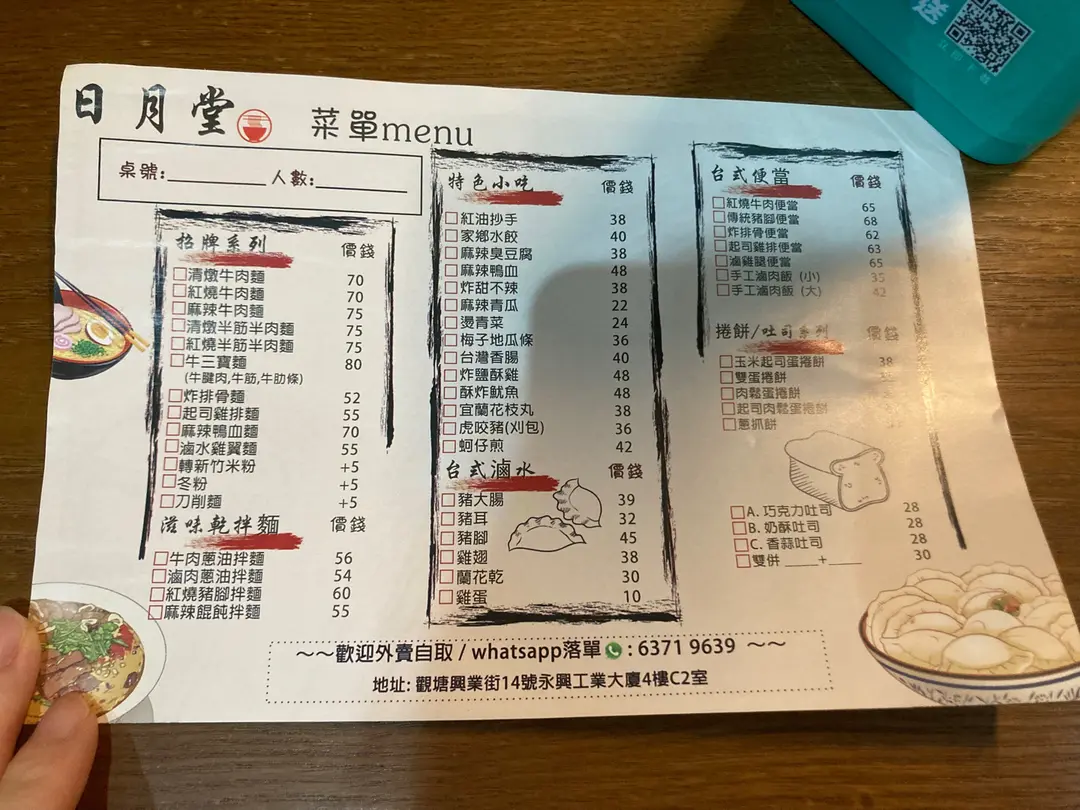 日月堂
菜單menu
桌號:________人數:________
招牌系列 價錢
清燉牛肉麵 70
紅燒牛肉麵 70
麻辣牛肉麵 75
清燉半筋半肉麵 75
紅燒半筋半肉麵 75
牛三寶麵 80
(牛腱肉,牛筋,牛肋條)
炸排骨麵 52
起司雞排麵 55
麻辣鴨血麵 70
滷水雞翼麵 55
轉新竹米粉 +5
冬粉 +5
刀削麵 +5
滋味乾拌麵 價錢
牛肉蔥油拌麵 56
滷肉蔥油拌麵 54
紅燒豬腳拌麵 60
麻辣餛飩拌麵 55
特色小吃 價錢
紅油抄手 38
家鄉水餃 40
麻辣臭豆腐 38
麻辣鴨血 48
炸甜不辣 38
麻辣青瓜 22
燙青菜 24
梅子地瓜條 36
台灣香腸 40
炸鹽酥雞 48
酥炸魷魚 48
宜蘭花枝丸 38
虎咬豬(刈包) 36
蚵仔煎 42
台式滷水 價錢
豬大腸 39
豬耳 32
豬腳 45
雞翅 38
蘭花乾 30
雞蛋 10
台式便當 價錢
紅燒牛肉便當 65
傳統豬腳便當 68
炸排骨便當 62
起司雞排便當 63
滷雞腿便當 65
手工滷肉飯 (小) 35
手工滷肉飯 (大) 42
捲餅/吐司系列 價錢
玉米起司蛋捲餅 38
雙蛋捲餅
肉鬆蛋捲餅
起司肉鬆蛋捲餅
蔥抓餅
A. 巧克力吐司 28
B. 奶酥吐司 28
C. 香蒜吐司 28
雙併 ____+____ 30
~~歡迎外賣自取 / whatsapp落單 : 6371 9639 ~~
地址: 觀塘興業街14號永興工業大廈4樓C2室